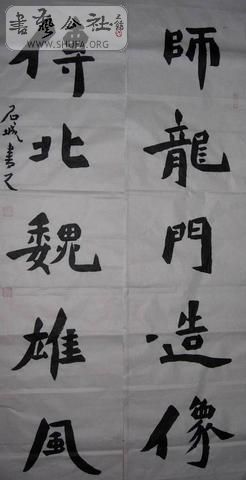 師龍門造像
傳北魏雄風
石城書
書藝公社
WWW.SHUFA.ORG